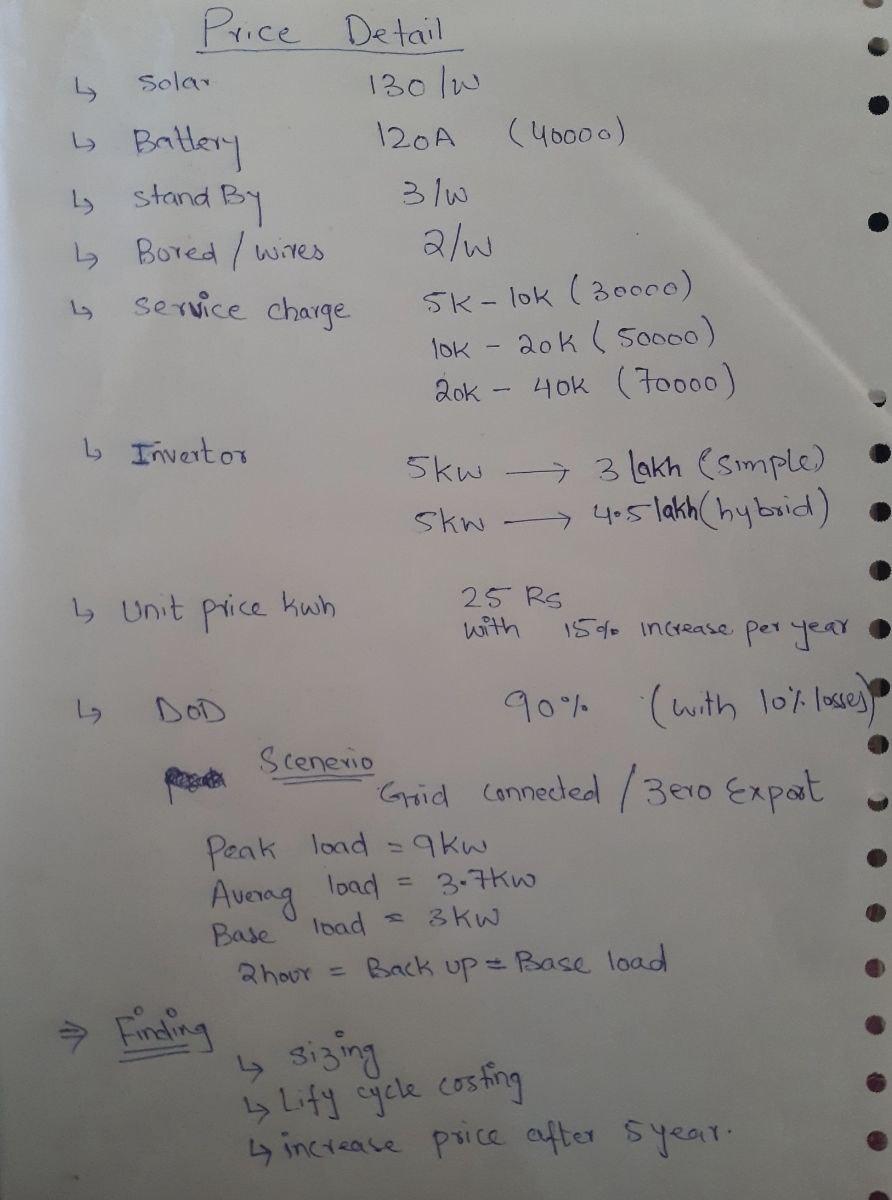 Price Detail
↳ Solar 130/W
↳ Battery 120A (40000)
↳ Stand By 3/W
↳ Bored / wires 2/W
↳ Service charge 5K - 10K (30000)
10K - 20K (50000)
20K - 40K (70000)
↳ Invertor 5kw → 3 lakh (simple)
5kw → 4.5 lakh (hybrid)
↳ Unit price kwh 25 Rs
with 15% increase per year
↳ DOD 90% (with 10% losses)
Scenerio
Grid connected / Zero Export
Peak load = 9KW
Averag load = 3.7KW
Base load = 3KW
2hour = Back up = Base load
⇒ Finding
↳ Sizing
↳ Lify cycle costing
↳ increase price after 5 year.